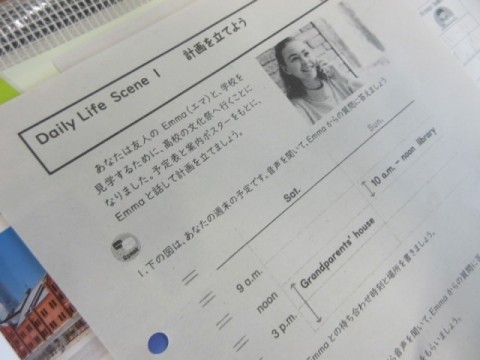 Daily Life Scene 1 計画を立てよう
あなたは友人の Emma（エマ）と、学校を
見学するために、高校の文化祭へ行くことに
なりました。予定表と案内ポスターをもとに、
Emmaと話して計画を立てましょう。
1. 下の図は、あなたの週末の予定です。音声を聞いて、Emmaからの質問に答えましょう
Sat.
Sun.
9 a.m.
noon
3 p.m.
Grandparents' house
10 a.m. – noon library
Emmaとの待ち合わせ時刻と場所を書きましょう。